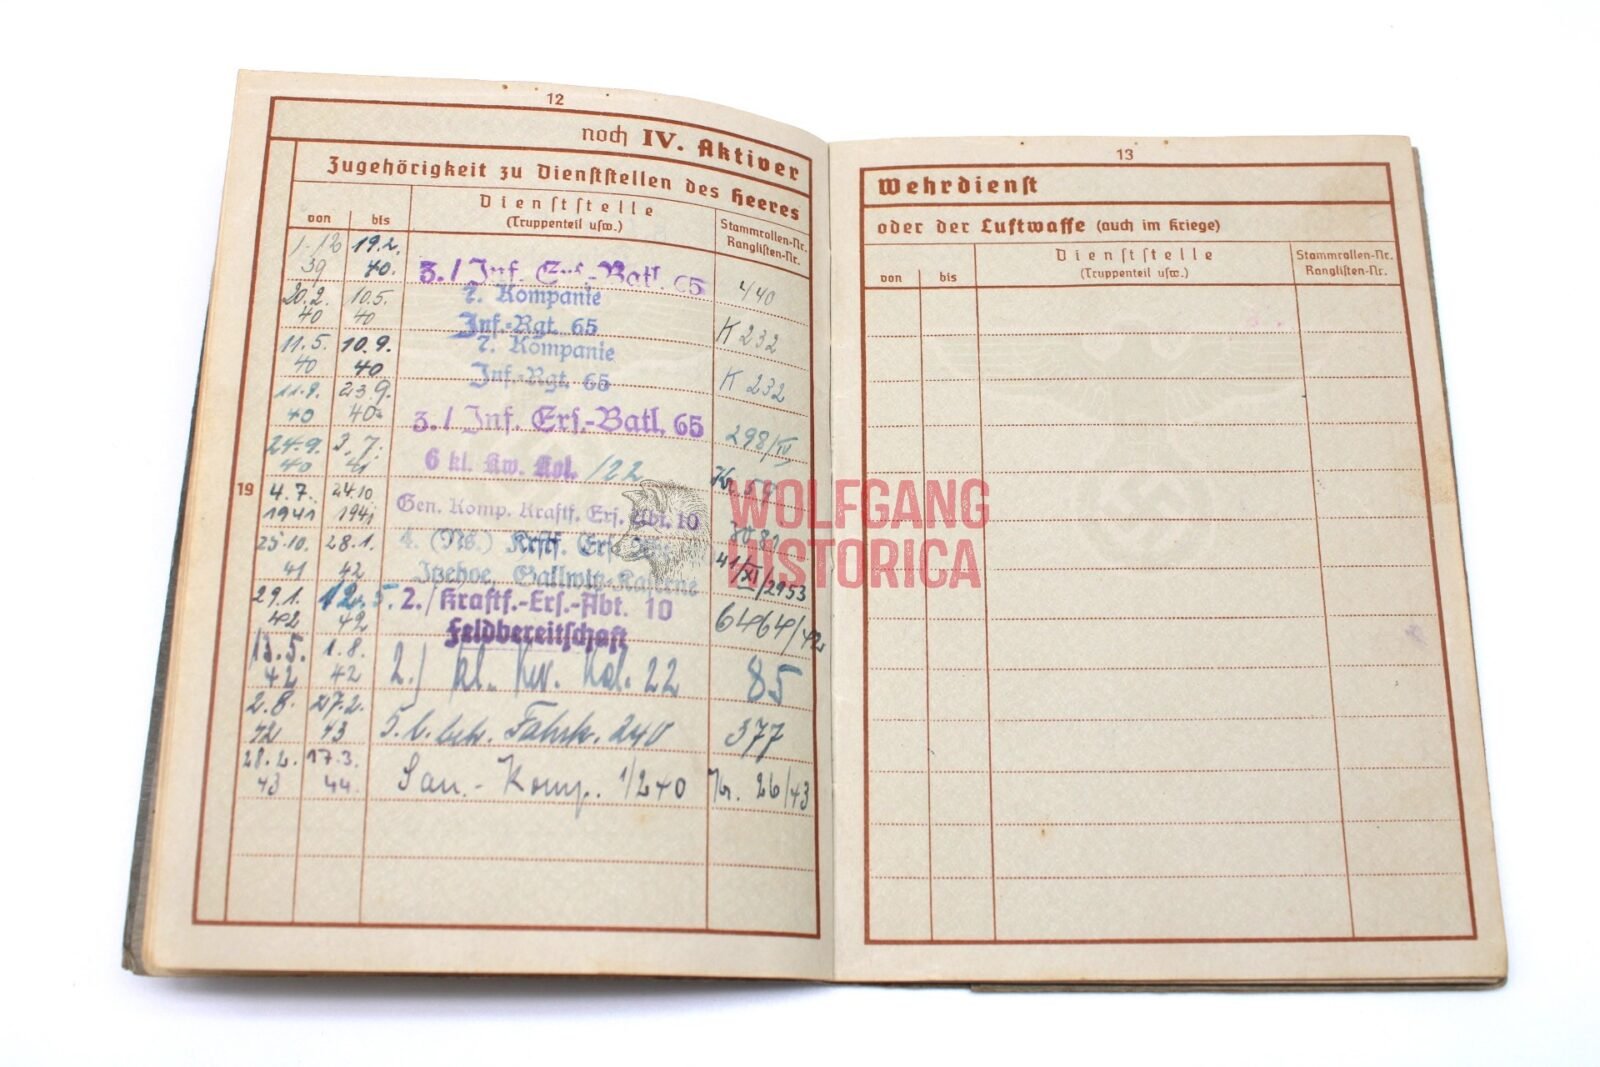 12
noch IV. Aktiver
Zugehörigkeit zu Dienststellen des Heeres
von bis Dienststelle (Truppenteil usw.) Stammrollen-Nr. Ranglisten-Nr.
1.12 39 19.2. 40. 3./Inf. Ers.-Batl. 65 440
20.2. 40 10.5. 40 7. Kompanie Inf.-Rgt. 65 K 232
11.5. 40 10.9. 40 7. Kompanie Inf.-Rgt. 65 K 232
40 23.9. 40 3./Inf. Ers.-Batl. 65 298/IV
24.9. 40 3.7. 41 6 kl. Kw. Kol. /22 59
19 4.7. 1941 24.10 1941 Gen. Komp. Kraftf. Ers. Abt. 10
25.10. 41 28.1. 42 4. (Nb.) Krftf. Ers. Itzehoe, Gallwitz-Kaserne 41/XI/2953
29.1. 42 12.5. 42 2./Kraftf.-Ers.-Abt. 10 Feldbereitschaft 6464/42
13.5. 42 1.8. 42 2./ kl. Kw. Kol. 22 85
2.8. 42 27.2. 43 Fahrk. 240 377
28.2. 43 17.3. 44. San.-Komp. 1/240 Nr. 26/43
13
Wehrdienst
oder der Luftwaffe (auch im Kriege)
von bis Dienststelle (Truppenteil usw.) Stammrollen-Nr. Ranglisten-Nr.
WOLFGANG
HISTORICA